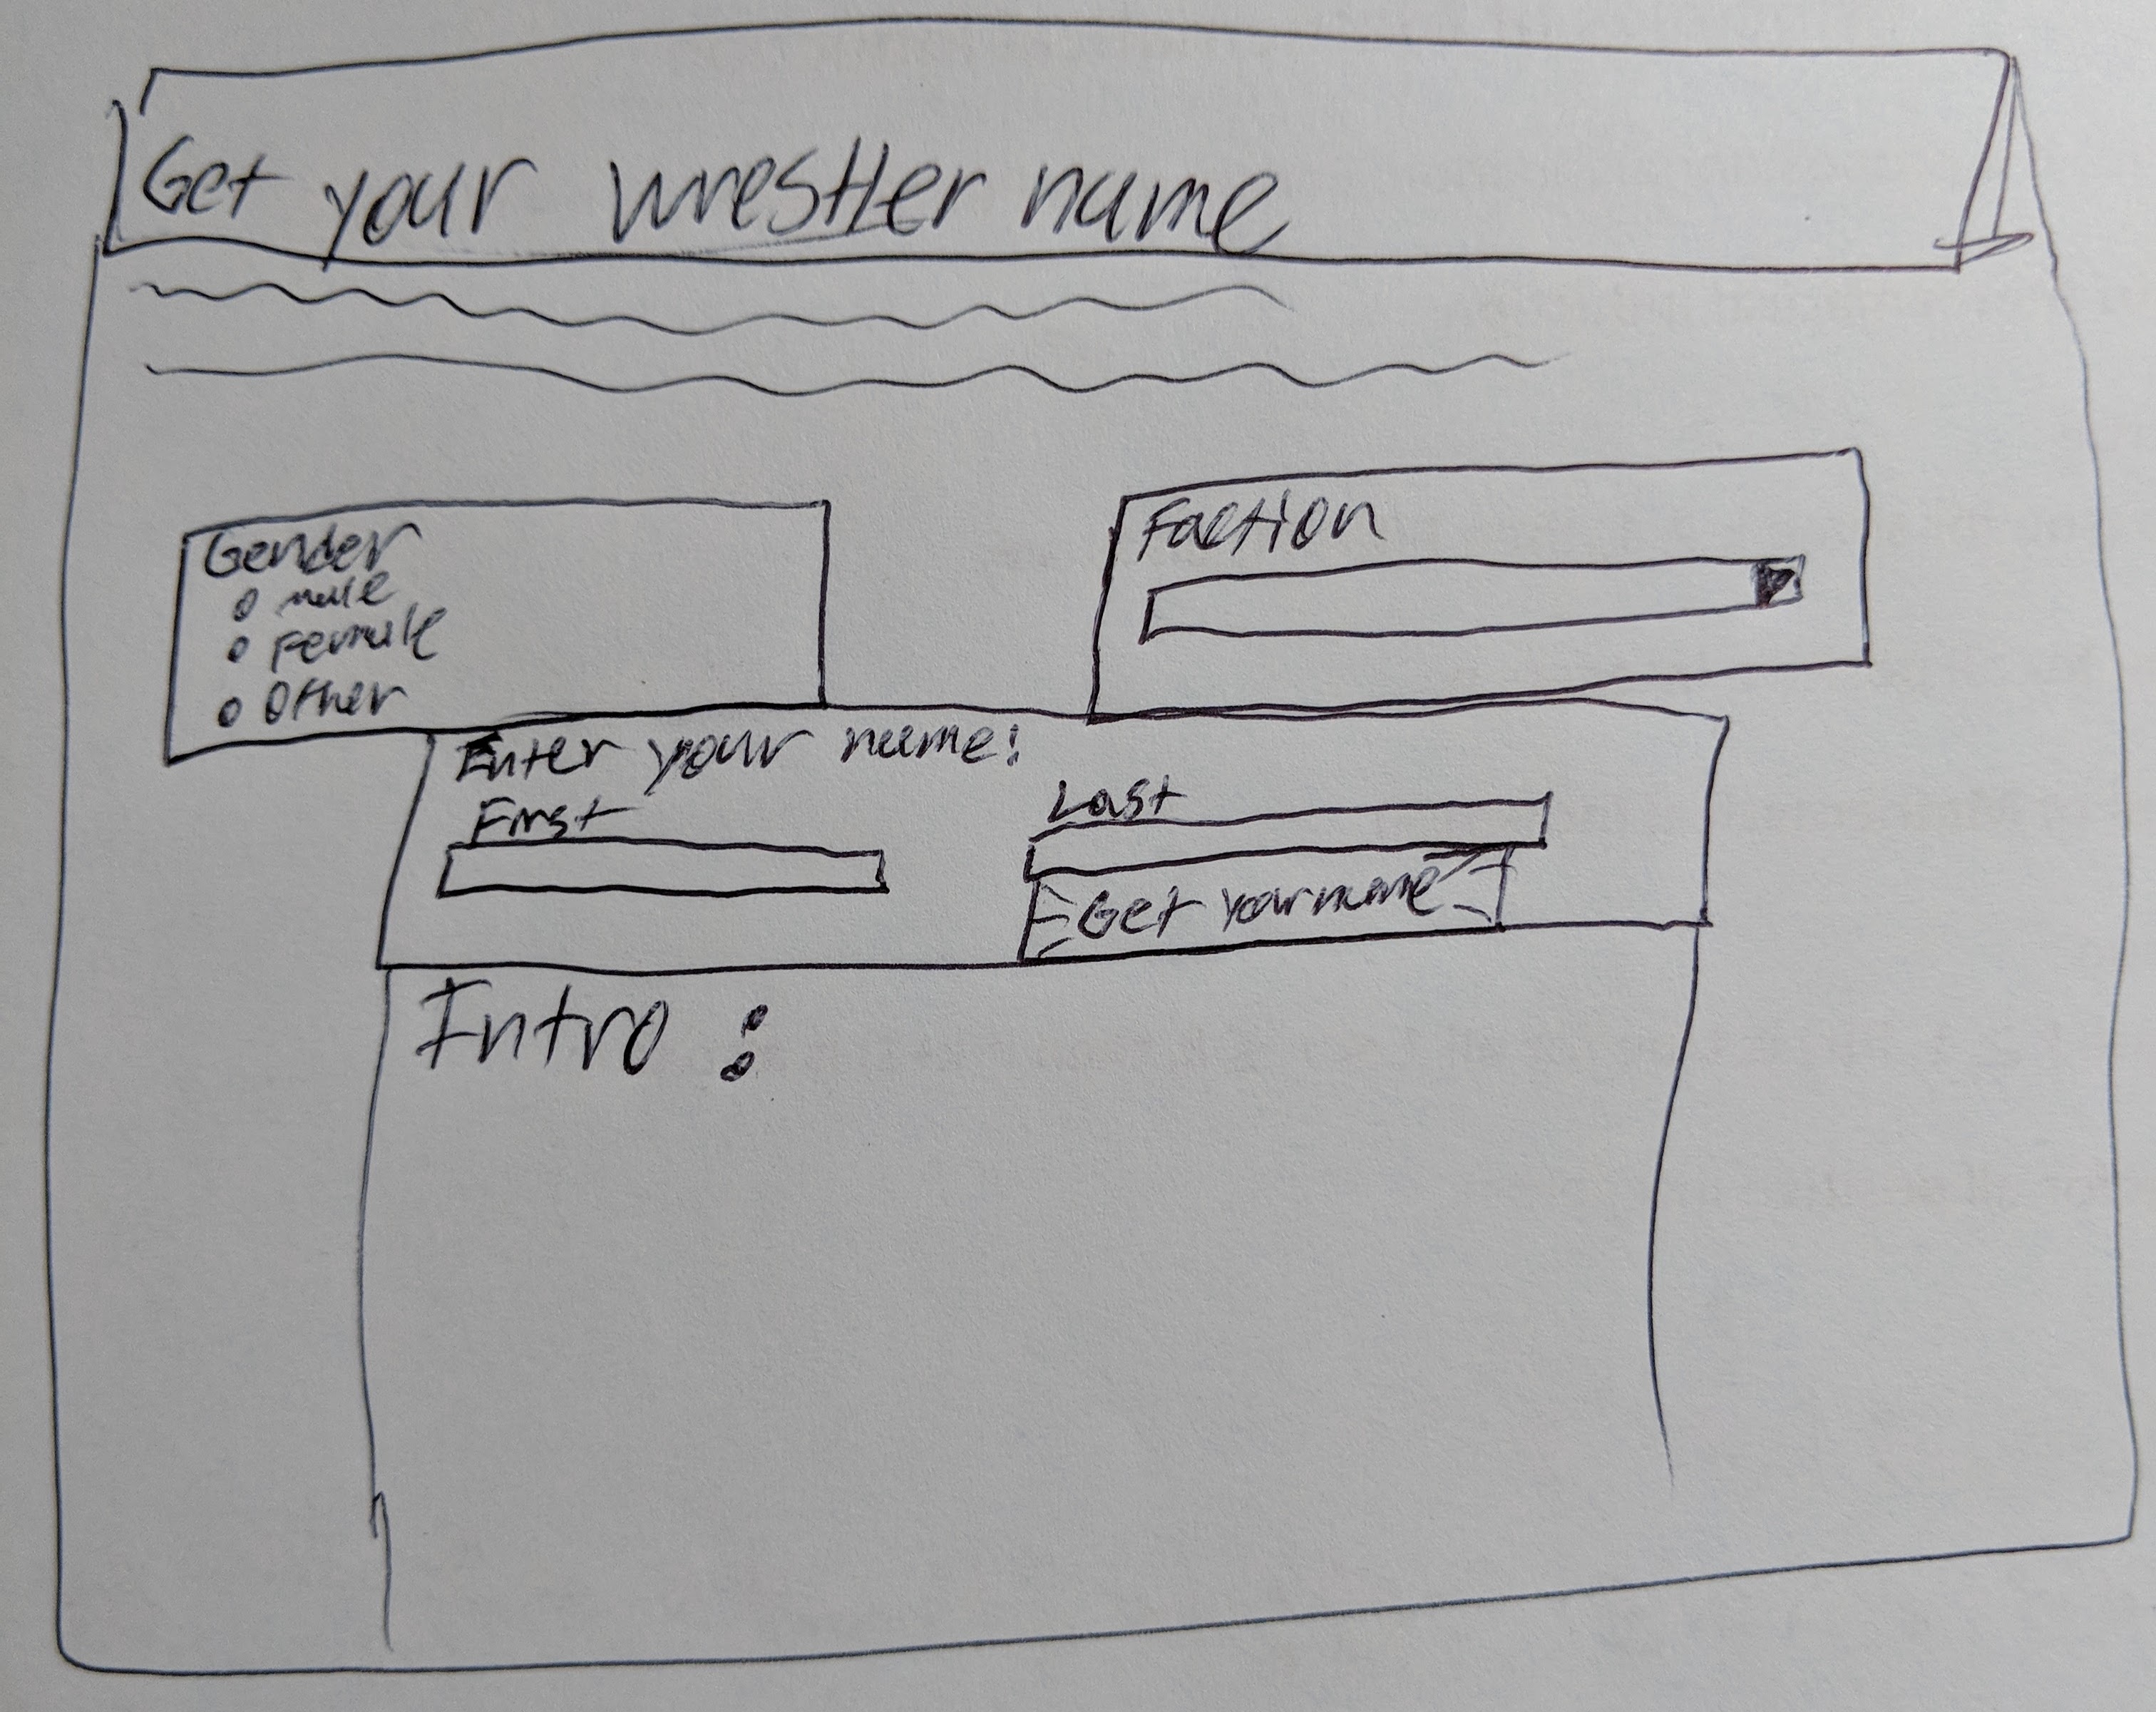 Get your wrestler name
Gender
male
Female
Other
Faction
Enter your name:
First
Last
Get your name
Intro :